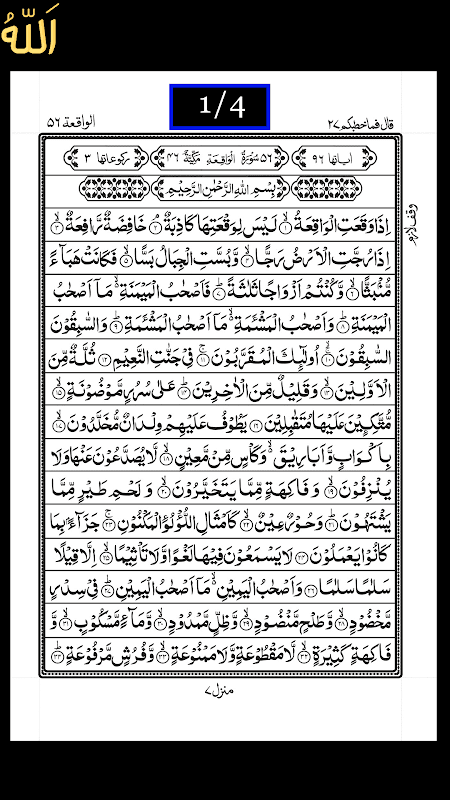 اَللّٰهُ
1/4
قال فماخطبكم ٢٧
الواقعة ٥٦
اٰياتها ٩٦
٥٦ سُوْرَةُ الْوَاقِعَةِ مَكِّيَّةٌ ٤٦
ركوعاتها ٣
بِسْمِ اللّٰهِ الرَّحْمٰنِ الرَّحِيْمِ
اِذَا وَقَعَتِ الْوَاقِعَةُ ۙ﴿١﴾ لَيْسَ لِوَقْعَتِهَا كَاذِبَةٌ ۘ﴿٢﴾ خَافِضَةٌ رَّافِعَةٌ ۙ﴿٣﴾
وقف لازم
اِذَا رُجَّتِ الْاَرْضُ رَجًّا ۙ﴿٤﴾ وَّ بُسَّتِ الْجِبَالُ بَسًّا ۙ﴿٥﴾ فَكَانَتْ هَبَآءً
مُّنْۢبَثًّا ۙ﴿٦﴾ وَّ كُنْتُمْ اَزْوَاجًا ثَلٰثَةً ؕ﴿٧﴾ فَاَصْحٰبُ الْمَيْمَنَةِ ۙ۬ مَاۤ اَصْحٰبُ
الْمَيْمَنَةِ ؕ﴿٨﴾ وَ اَصْحٰبُ الْمَشْـَٔمَةِ ۙ۬ مَاۤ اَصْحٰبُ الْمَشْـَٔمَةِ ؕ﴿٩﴾ وَ السّٰبِقُوْنَ
السّٰبِقُوْنَ ۚۙ﴿١٠﴾ اُولٰٓئِكَ الْمُقَرَّبُوْنَ ۚ﴿١١﴾ فِيْ جَنّٰتِ النَّعِيْمِ ﴿١٢﴾ ثُلَّةٌ مِّنَ
الْاَوَّلِيْنَ ۙ﴿١٣﴾ وَ قَلِيْلٌ مِّنَ الْاٰخِرِيْنَ ؕ﴿١٤﴾ عَلٰى سُرُرٍ مَّوْضُوْنَةٍ ۙ﴿١٥﴾
مُّتَّكِـِٕيْنَ عَلَيْهَا مُتَقٰبِلِيْنَ ﴿١٦﴾ يَطُوْفُ عَلَيْهِمْ وِلْدَانٌ مُّخَلَّدُوْنَ ۙ﴿١٧﴾
بِاَكْوَابٍ وَّ اَبَارِيْقَ ۙ۬ وَ كَاْسٍ مِّنْ مَّعِيْنٍ ۙ﴿١٨﴾ لَّا يُصَدَّعُوْنَ عَنْهَا وَ لَا
يُنْزِفُوْنَ ۙ﴿١٩﴾ وَ فَاكِهَةٍ مِّمَّا يَتَخَيَّرُوْنَ ۙ﴿٢٠﴾ وَ لَحْمِ طَيْرٍ مِّمَّا
يَشْتَهُوْنَ ؕ﴿٢١﴾ وَ حُوْرٌ عِيْنٌ ۙ﴿٢٢﴾ كَاَمْثَالِ اللُّؤْلُؤِ الْمَكْنُوْنِ ۚ﴿٢٣﴾ جَزَآءًۢ بِمَا
كَانُوْا يَعْمَلُوْنَ ﴿٢٤﴾ لَا يَسْمَعُوْنَ فِيْهَا لَغْوًا وَّ لَا تَاْثِيْمًا ۙ﴿٢٥﴾ اِلَّا قِيْلًا
سَلٰمًا سَلٰمًا ﴿٢٦﴾ وَ اَصْحٰبُ الْيَمِيْنِ ۙ۬ مَاۤ اَصْحٰبُ الْيَمِيْنِ ؕ﴿٢٧﴾ فِيْ سِدْرٍ
مَّخْضُوْدٍ ۙ﴿٢٨﴾ وَّ طَلْحٍ مَّنْضُوْدٍ ۙ﴿٢٩﴾ وَّ ظِلٍّ مَّمْدُوْدٍ ۙ﴿٣٠﴾ وَّ مَآءٍ مَّسْكُوْبٍ ۙ﴿٣١﴾ وَّ
فَاكِهَةٍ كَثِيْرَةٍ ۙ﴿٣٢﴾ لَّا مَقْطُوْعَةٍ وَّ لَا مَمْنُوْعَةٍ ۙ﴿٣٣﴾ وَّ فُرُشٍ مَّرْفُوْعَةٍ ؕ﴿٣٤﴾
منزل ٧